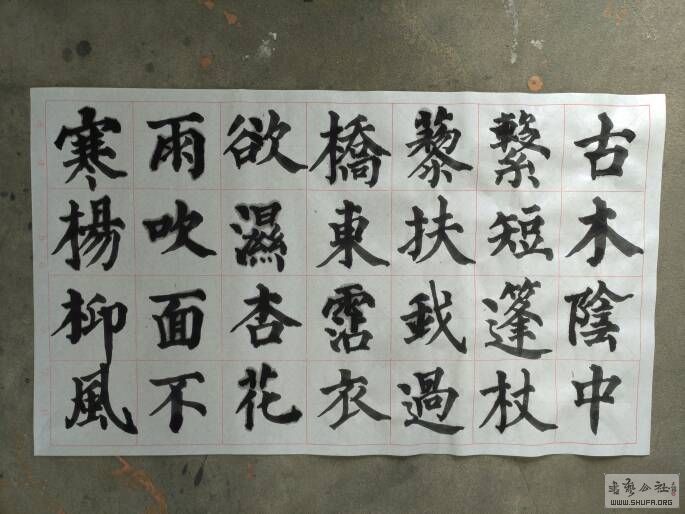 古木陰中
繫短篷杖
藜扶我過
橋東霑衣
欲濕杏花
雨吹面不
寒楊柳風
書藝公社
WWW.SHUFA.ORG